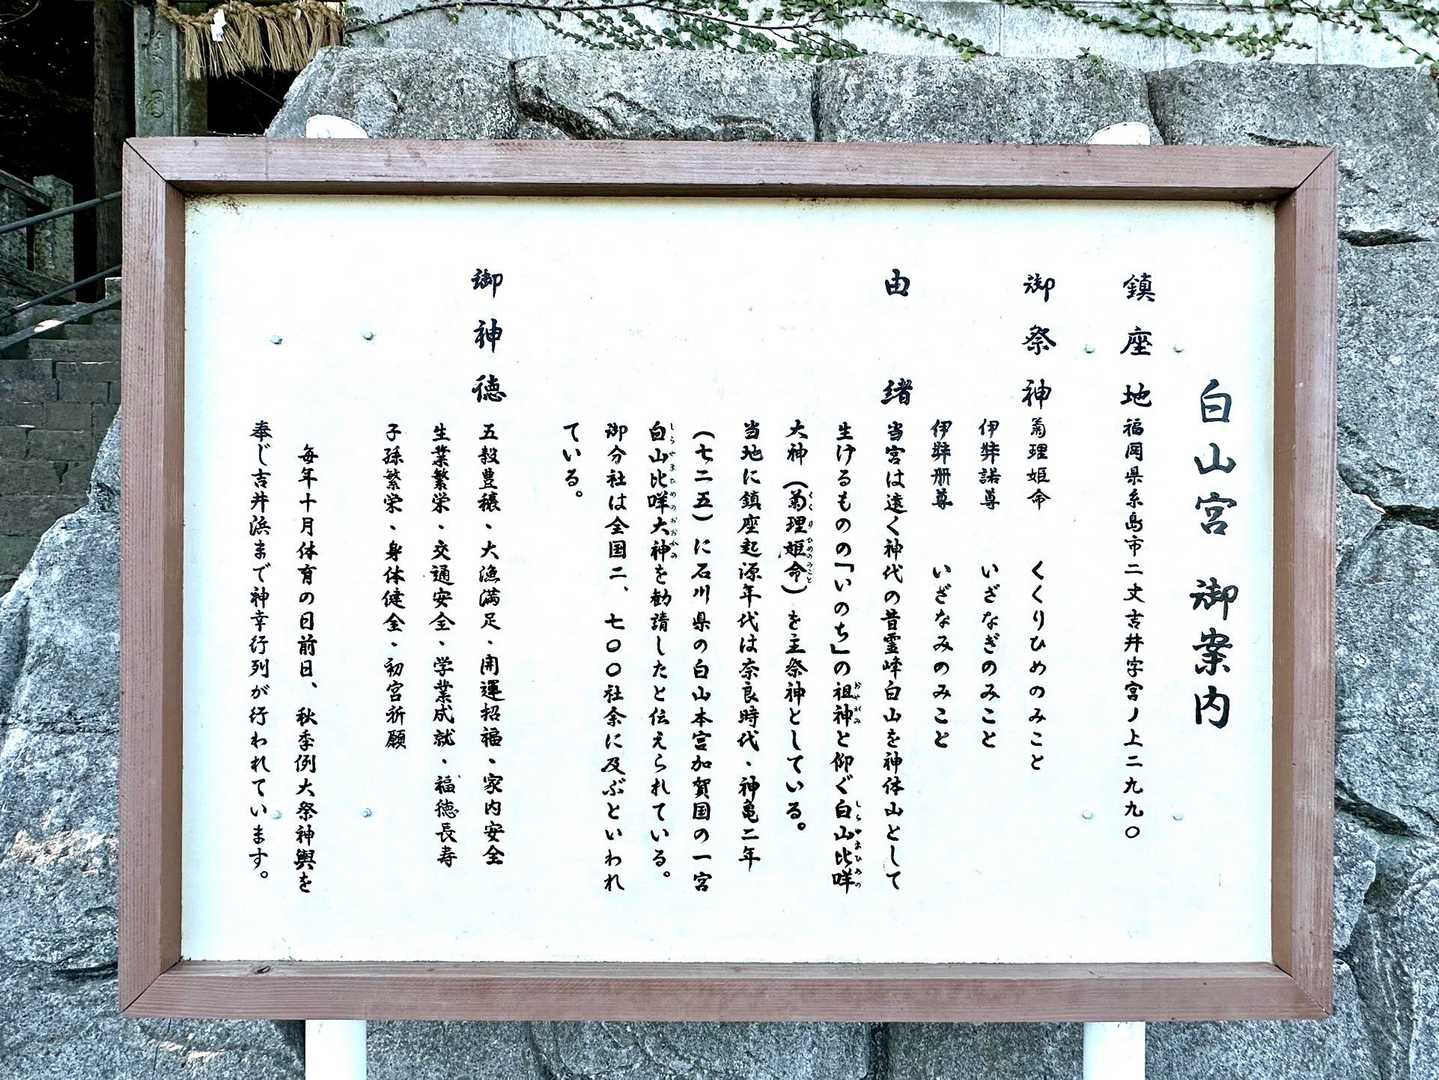 白山宮 御案内
鎮座地 福岡県糸島市二丈吉井字宮ノ上二九九〇
御祭神 菊理姫命 くくりひめのみこと
伊弉諾尊 いざなぎのみこと
伊弉册尊 いざなみのみこと
由緒 当宮は遠く神代の昔霊峰白山を神体山として
生けるものの「いのち」の祖神と仰ぐ白山比咩
おやがみ しらやまひめの
大神（菊理姫命）を主祭神としている。
くくりひめのみこと
当地に鎮座起源年代は奈良時代・神亀二年
（七二五）に石川県の白山本宮加賀国の一宮
白山比咩大神を勧請したと伝えられている。
しらやまひめのおおかみ
御分社は全国二、七〇〇社余に及ぶといわれ
ている。
御神徳 五穀豊穣・大漁満足・開運招福・家内安全
生業繁栄・交通安全・学業成就・福徳長寿
子孫繁栄・身体健全・初宮祈願
毎年十月体育の日前日、秋季例大祭神輿を
奉じ吉井浜まで神幸行列が行われています。